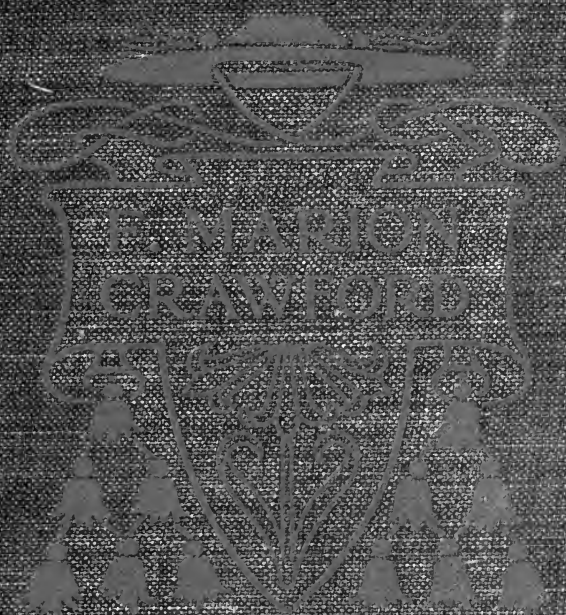 F. MARION
CRAWFORD